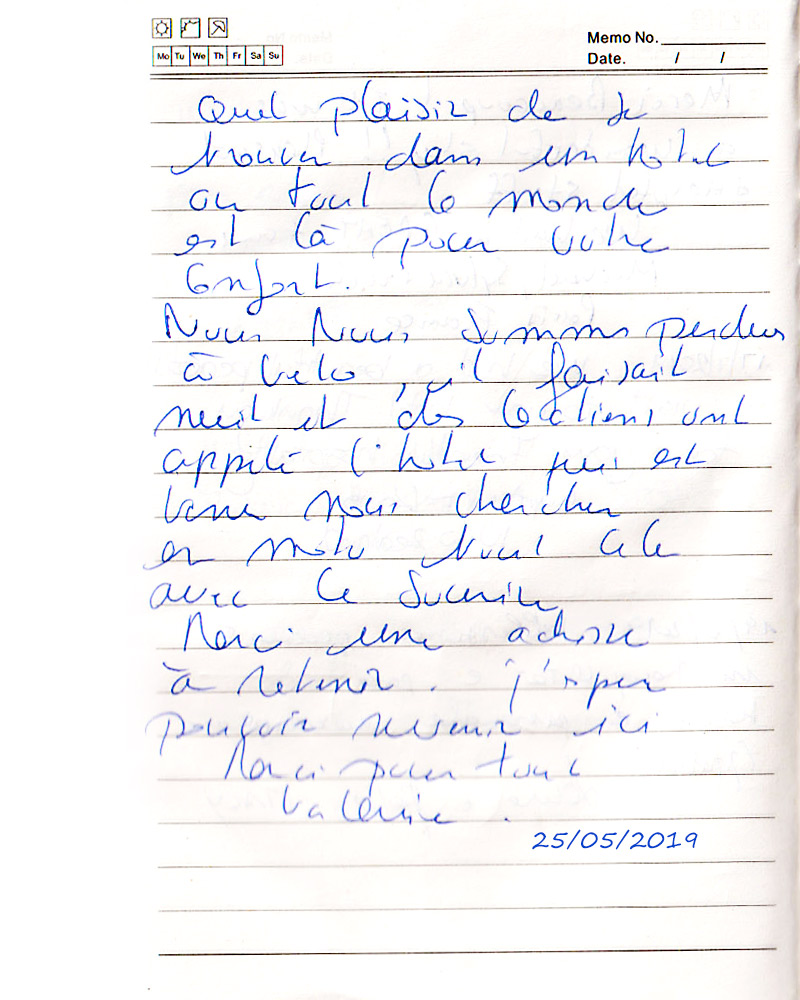 Mo Tu We Th Fr Sa Su
Memo No.
Date. / /
Quel plaisir de se
trouver dans un hotel
ou tout le monde
est là pour votre
Confort.
Nous Nous sommes perdus
à velo, il faisait
nuit et des locations ont
appelé l'hotel qui est
venu nous chercher
en moto tout cela
avec le Sourire
Merci une adresse
à retenir. j'espere
pouvoir revenir ici
Merci pour tout
Valerie.
25/05/2019